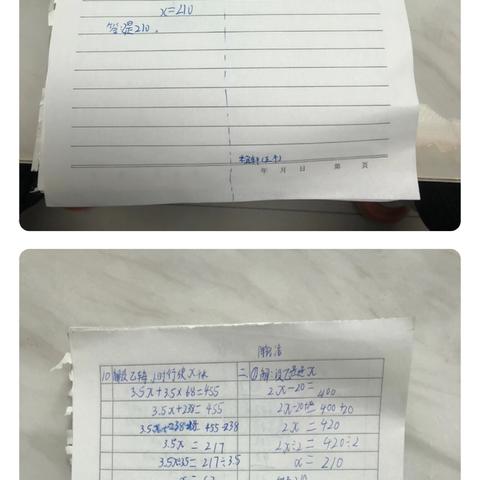 x=210
答:是210.
年 月 日 第 页
10 解设乙车 1时行使x千米
3.5x+3.5×68=455
3.5x+238=455
3.5x+238-238=455-238
3.5x=217
3.5x÷3.5=217÷3.5
二 ①解:设乙
2x-20=400
2x-20+20=400+20
2x=420
2x÷2=420÷2
x=210